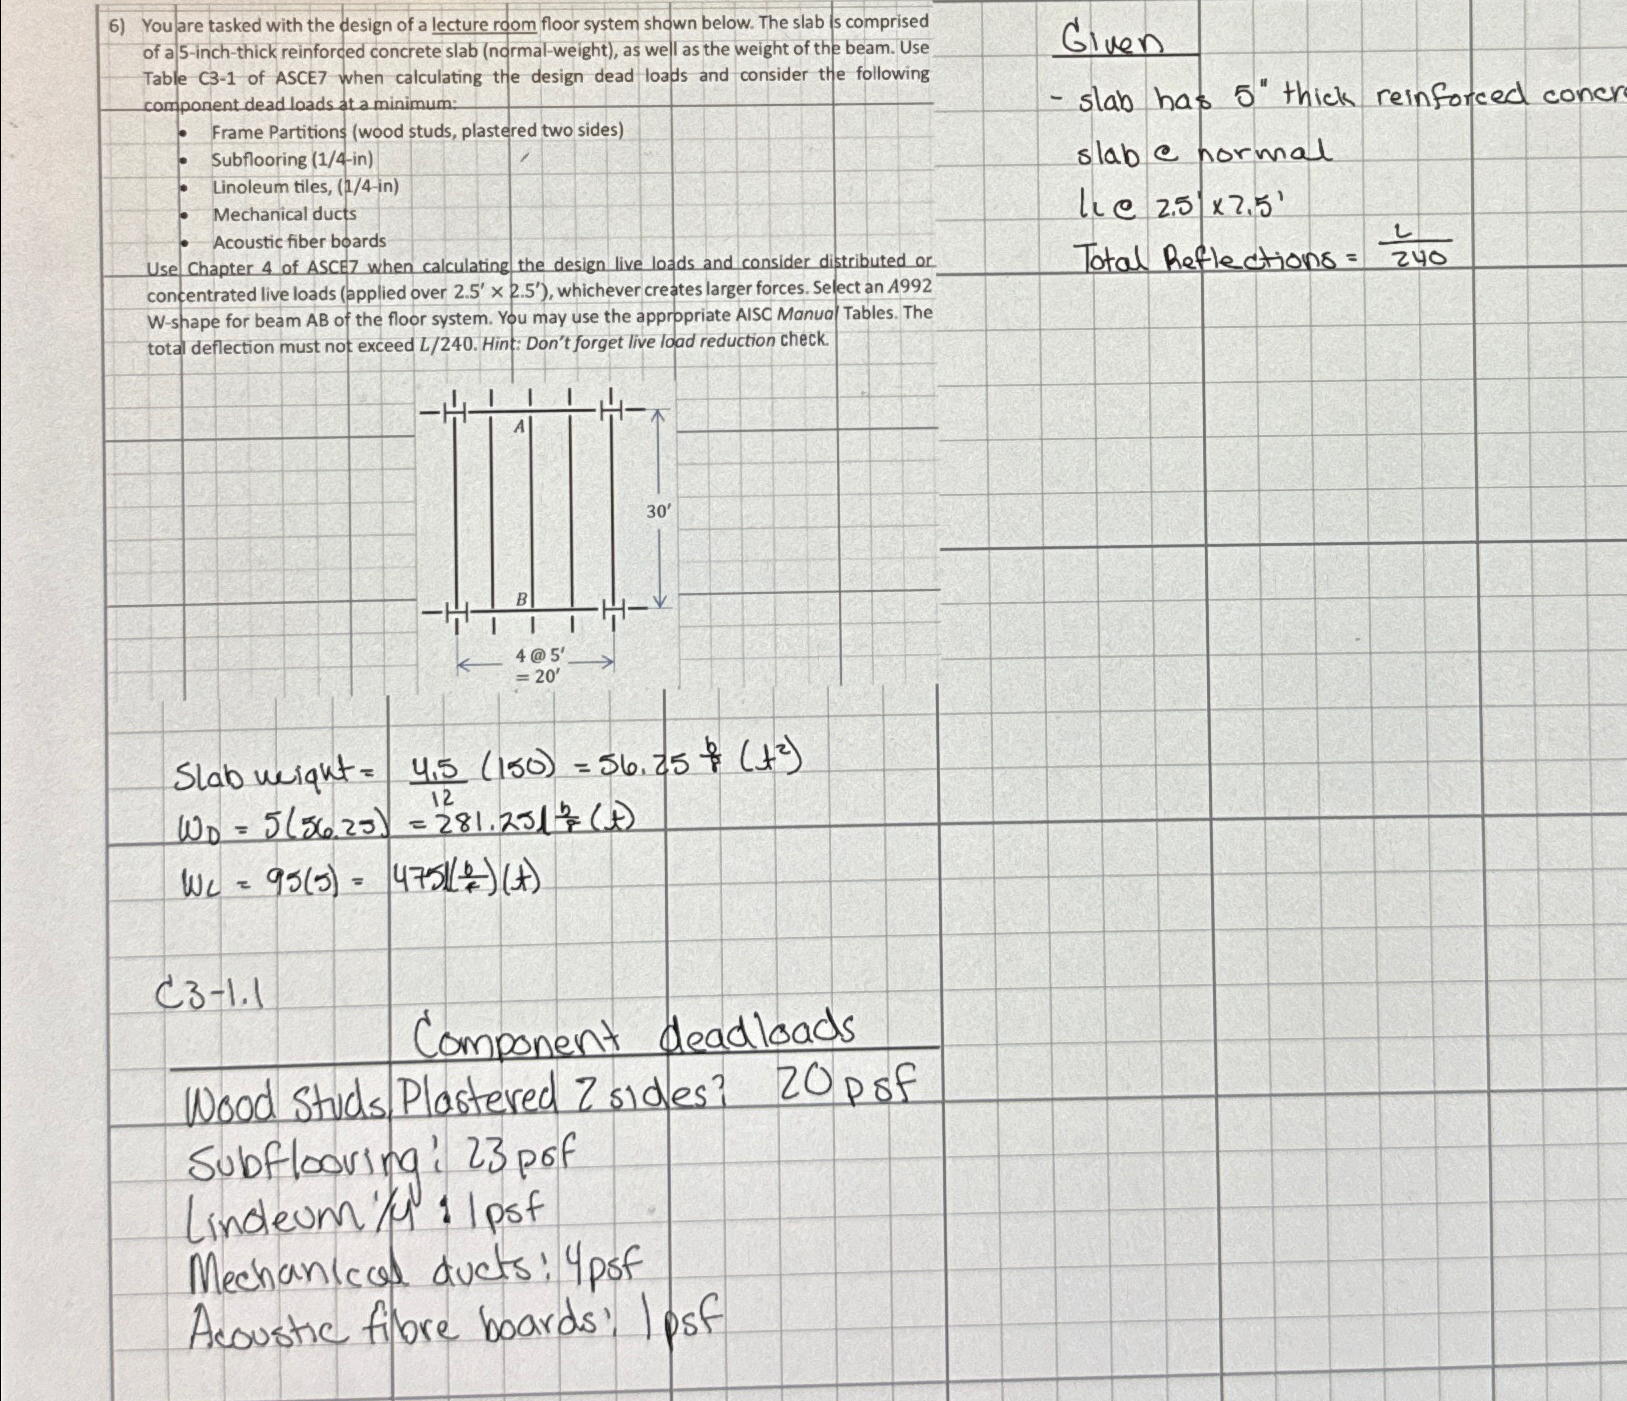 6) You are tasked with the design of a lecture room floor system shown below. The slab is comprised
of a 5-inch-thick reinforced concrete slab (normal-weight), as well as the weight of the beam. Use
Table C3-1 of ASCE7 when calculating the design dead loads and consider the following
component dead loads at a minimum:
• Frame Partitions (wood studs, plastered two sides)
• Subflooring (1/4-in)
• Linoleum tiles, (1/4-in)
• Mechanical ducts
• Acoustic fiber boards
Use Chapter 4 of ASCE7 when calculating the design live loads and consider distributed or
concentrated live loads (applied over 2.5' × 2.5'), whichever creates larger forces. Select an A992
W-shape for beam AB of the floor system. You may use the appropriate AISC Manual Tables. The
total deflection must not exceed L/240. Hint: Don't forget live load reduction check.
A
30'
B
4 @ 5'
= 20'
Given
- slab has 5" thick reinforced concr
slab @ normal
@ 2.5' x 2.5'
Total Reflections = L/240
Slab weight = 4.5/12 (150) = 56.25 (t²)
WD = 5(56.25) = 281.25 (t)
WL = 95(5) = 475 (t)
C3-1.1
Component deadloads
Wood Studs, Plastered 2 sides: 20 psf
Subflooring: 23 psf
Linoleum 1/4": 1 psf
Mechanical ducts: 4 psf
Acoustic fibre boards: 1 psf